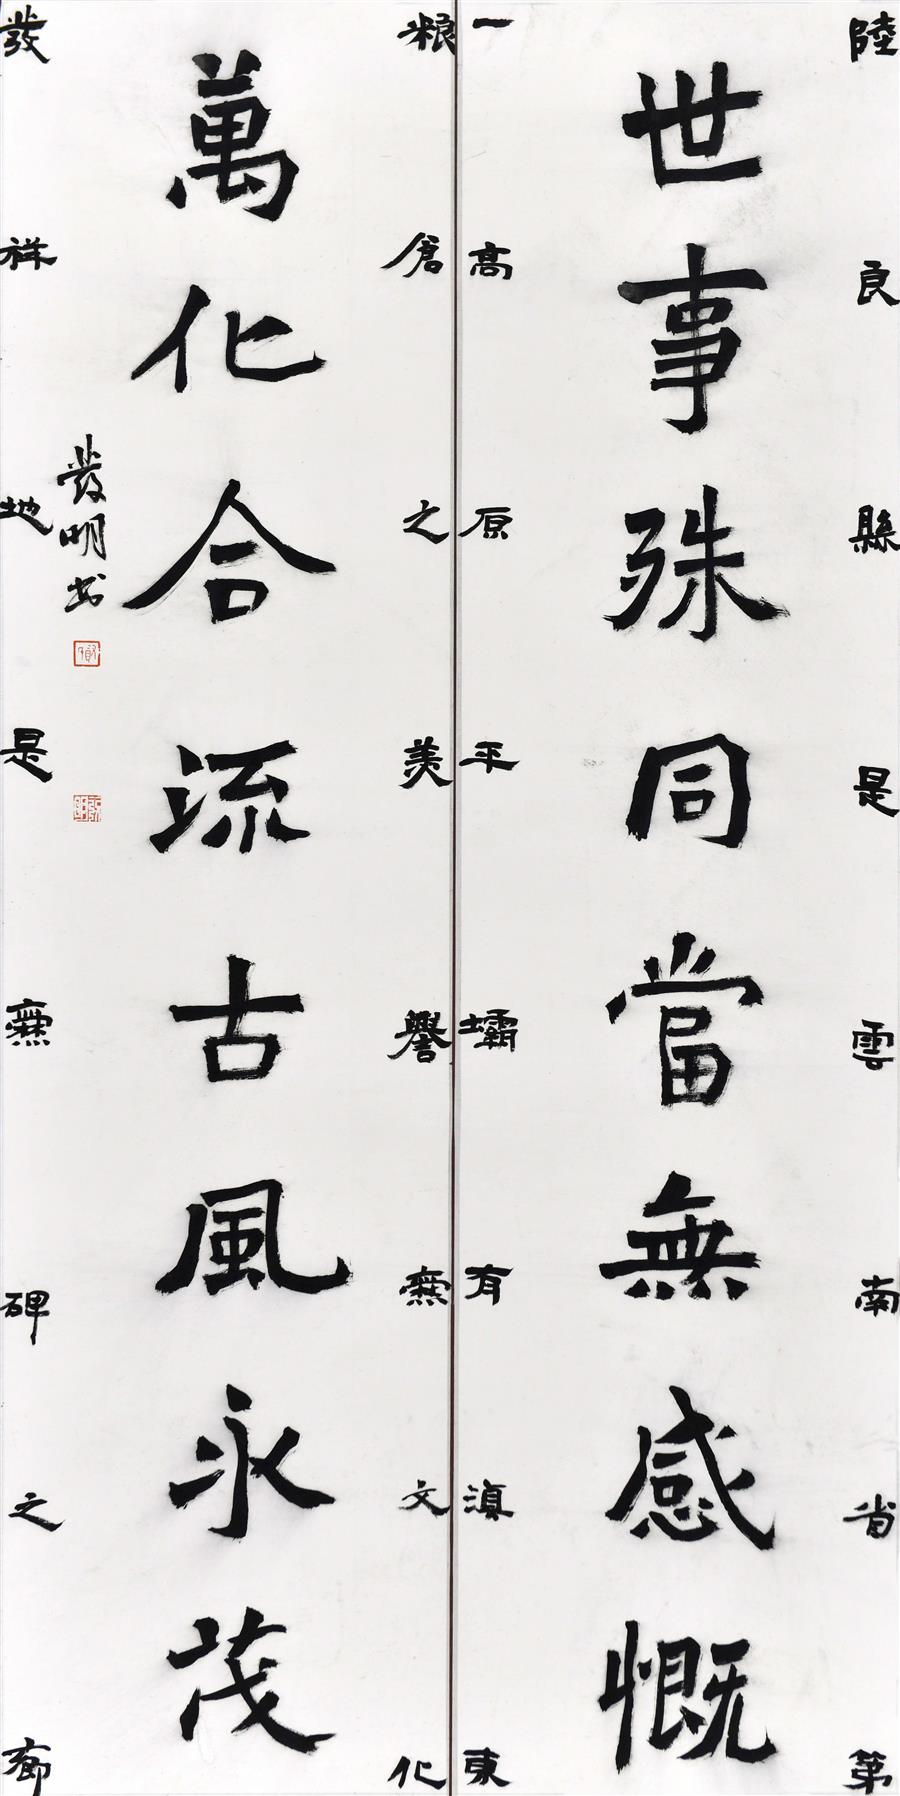 陸良縣是雲南省第
世事殊同當無感慨
一高原平壩有滇東
粮倉之美譽爨文化
萬化合流古風永茂
發祥地是爨碑之鄉
發明书